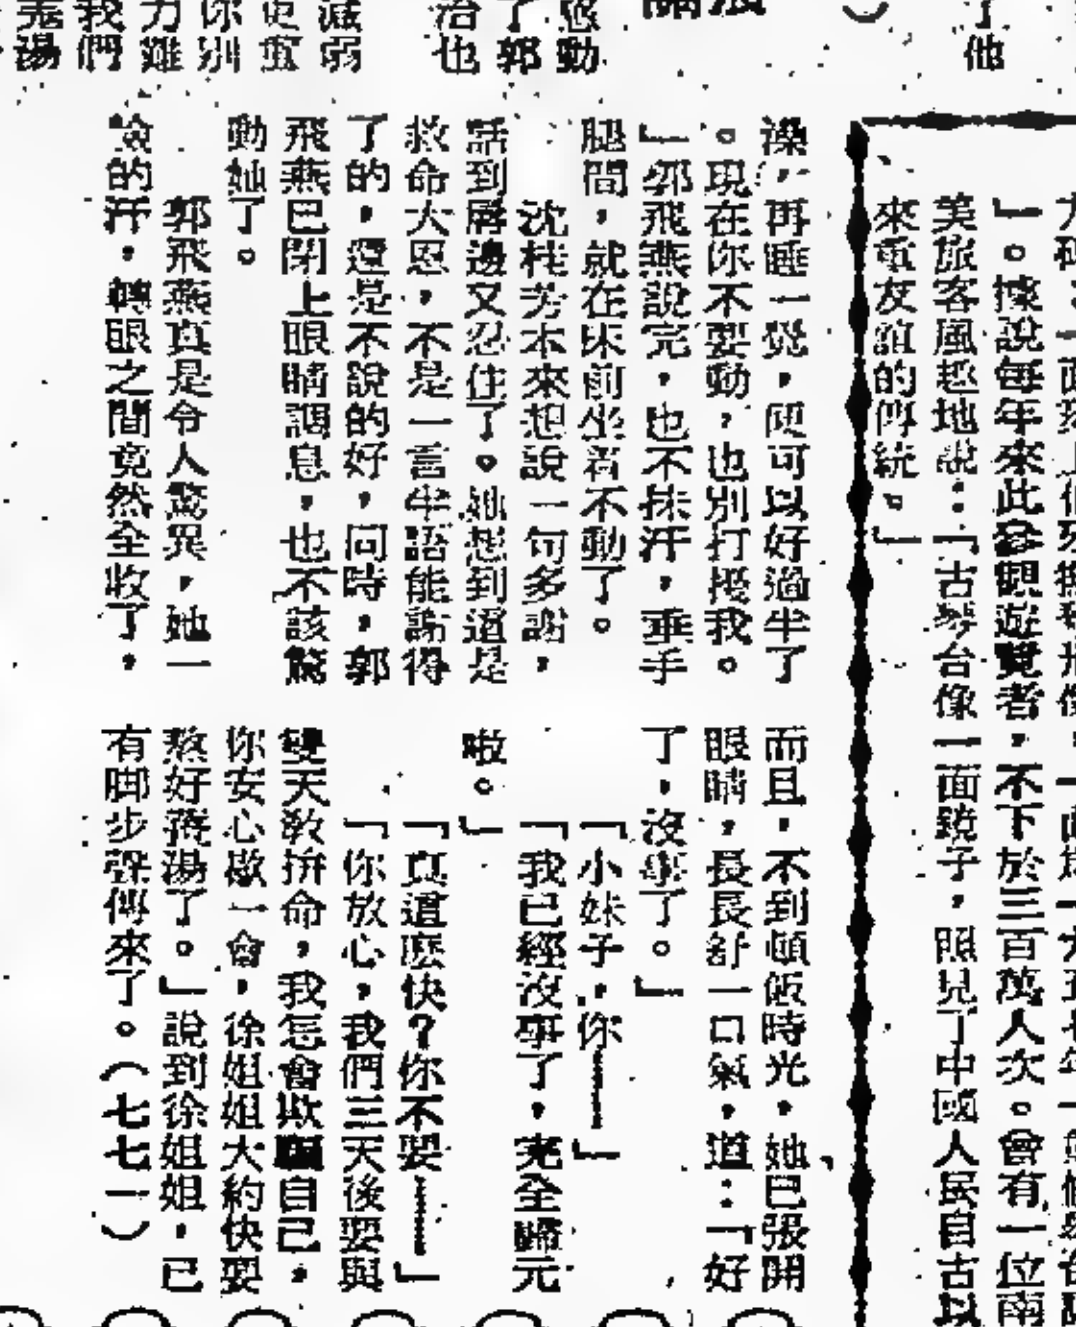 了他
」。據說每年來此參觀遊覽者，不下於三百萬人次。曾有一位南
美旅客風趣地說：「古琴台像一面鏡子，照見了中國人民自古以
來重友誼的傳統。」
感動
了郭
治也
減弱
更重
你別
力雖
我們
湯
澡，再睡一覺，便可以好過半了
。現在你不要動，也別打擾我。
」郭飛燕說完，也不抹汗，垂手
腿間，就在床前坐着不動了。
沈桂芳本來想說一句多謝，
話到脣邊又忍住了。她想到這是
救命大恩，不是一言半語能謝得
了的，還是不說的好，同時，郭
飛燕已閉上眼睛調息，也不該驚
動她了。
郭飛燕真是令人驚異，她一
臉的汗，轉眼之間竟然全收了，
而且，不到頓飯時光，她已張開
眼睛，長長舒一口氣，道：「好
了，沒事了。」
「小妹子，你——」
「我已經沒事了，完全歸元
啦。」
「真這麼快？你不要——」
「你放心，我們三天後要與
雙天教拚命，我怎會欺騙自己，
你安心歇一會，徐姐姐大約快要
熬好蔘湯了。」說到徐姐姐，已
有脚步聲傳來了。（七七一）